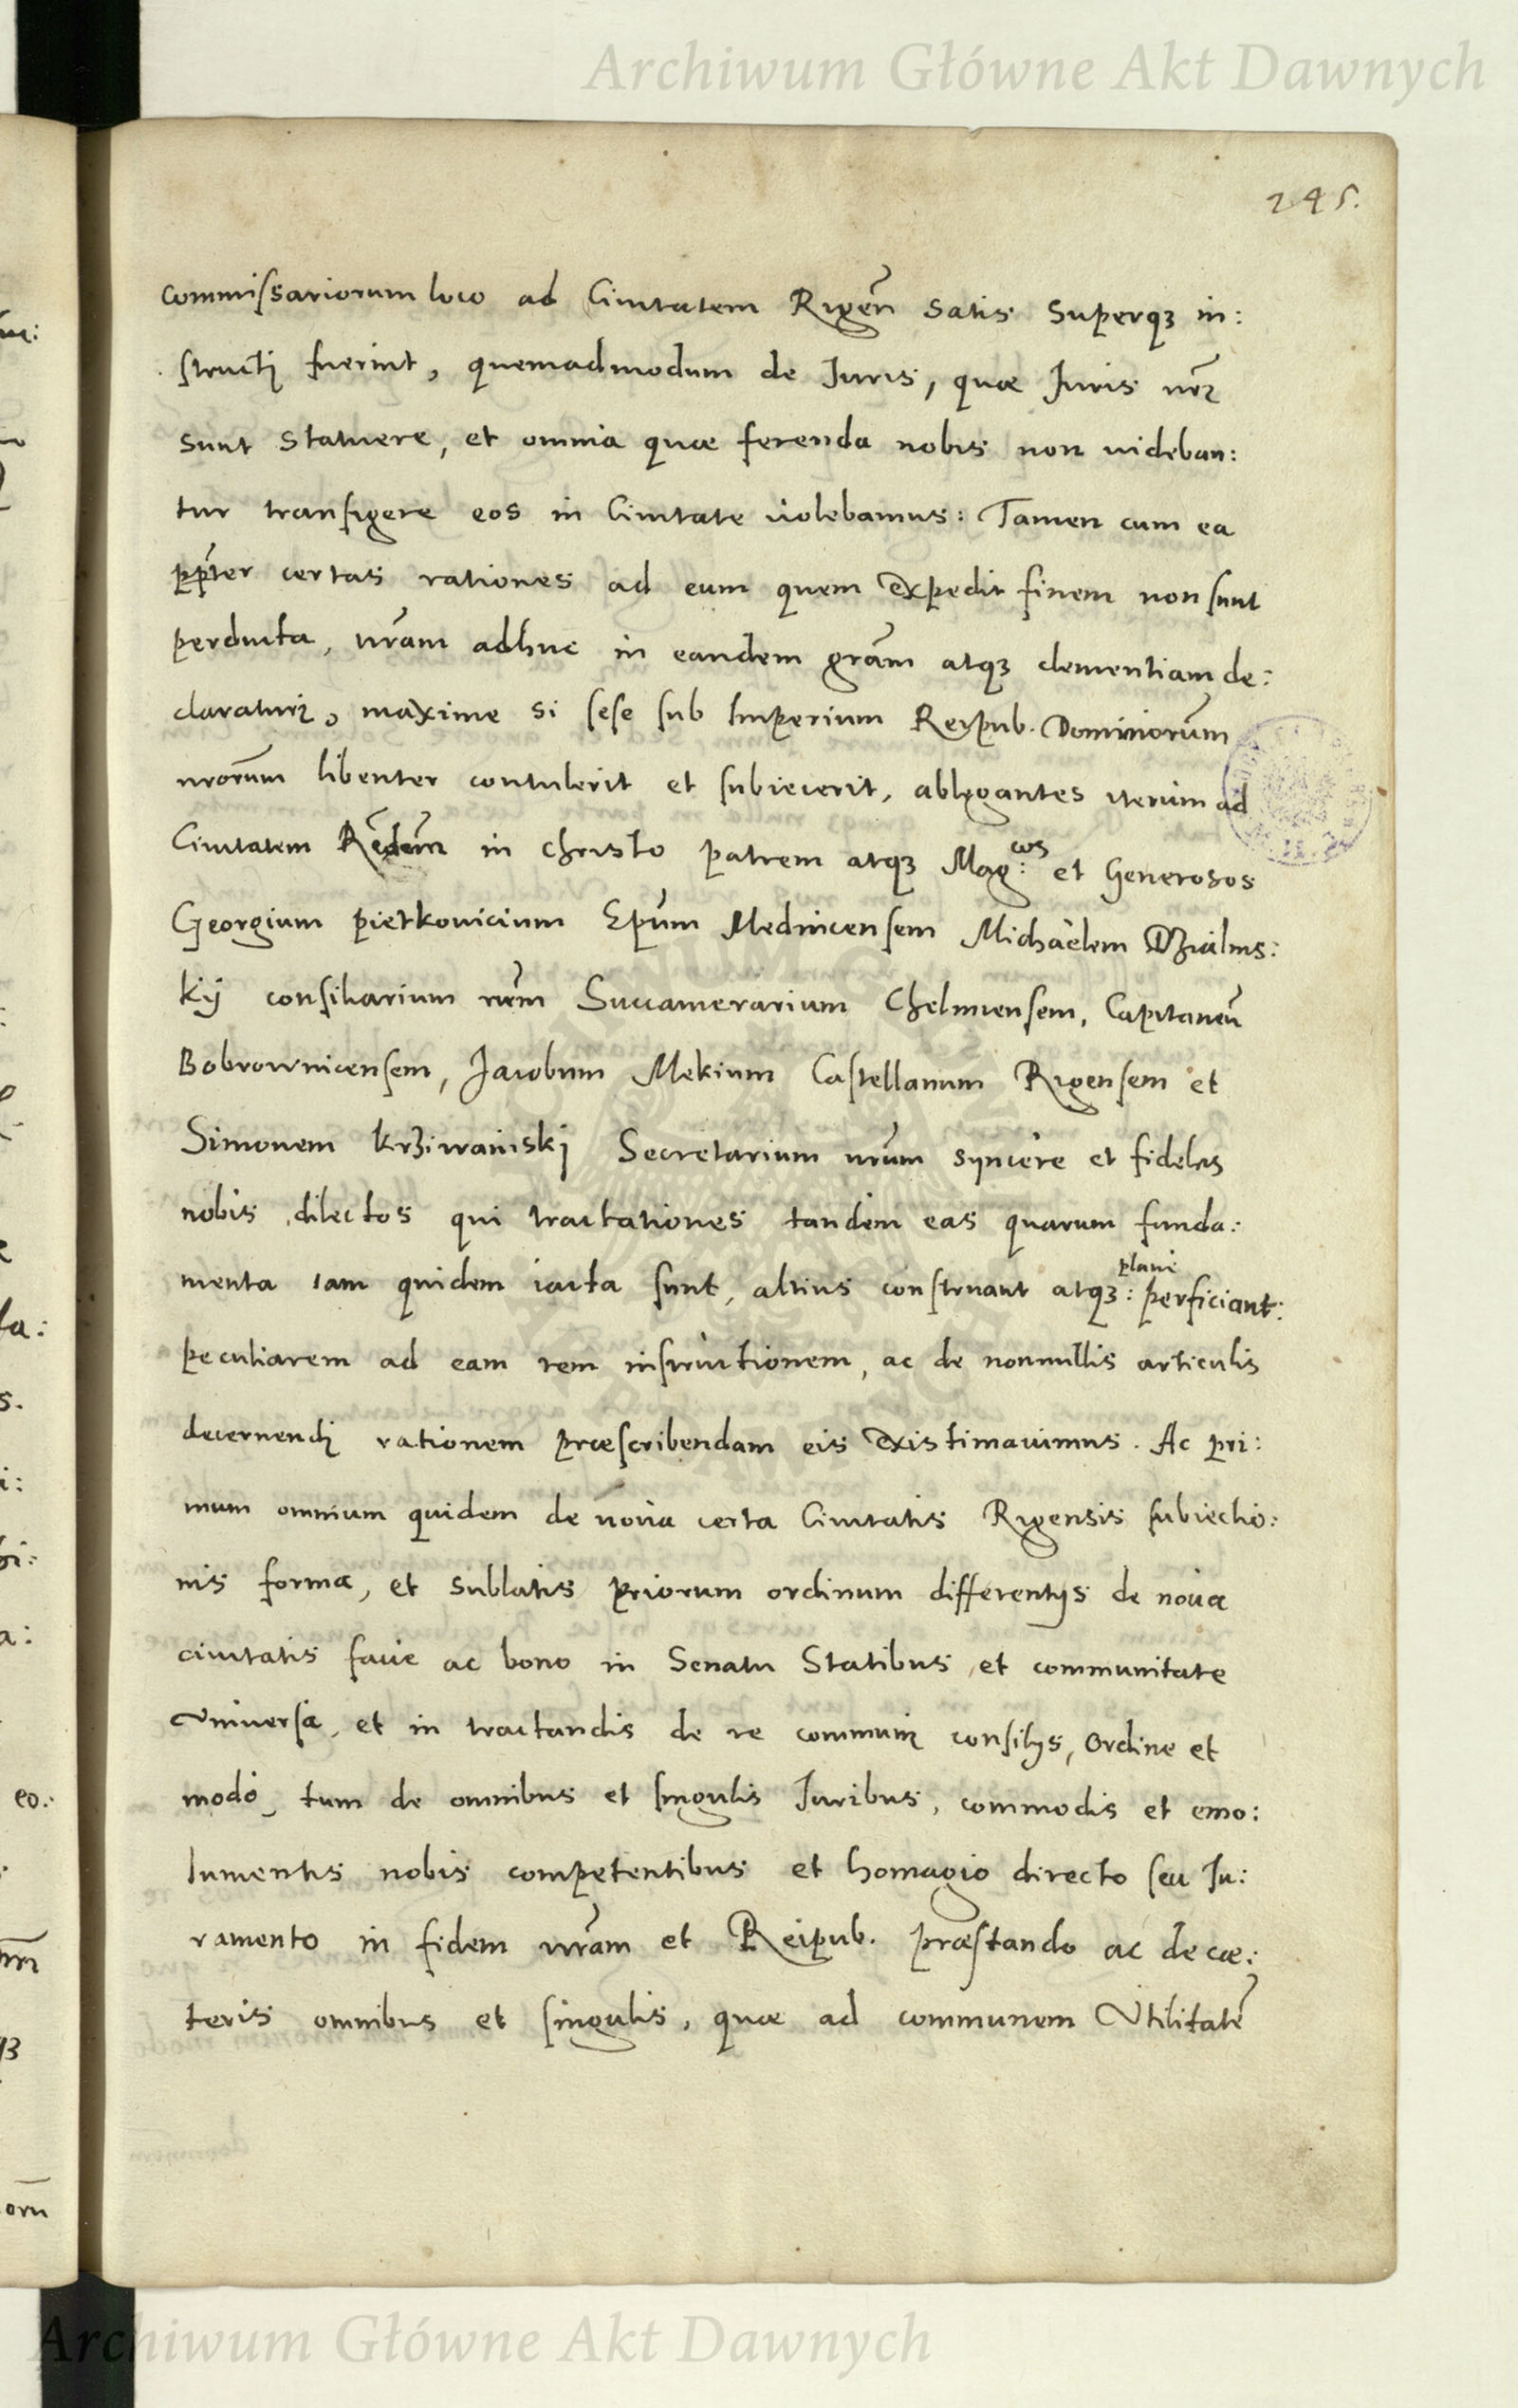 Archiwum Główne Akt Dawnych
245.
commissariorum loco ad Ciuitatem Rigeñ satis superqз in:
structi fuerint, quemadmodum de Iuris, quæ Iuris nrĩ
sunt statuere, et omnia quæ ferenda nobis non videban:
tur transigere eos in Ciuitate volebamus: Tamen cum ea
pp̃ter certas rationes ad eum quem expedit finem non sunt
perducta, nr̃am adhuc in eandem gr̃am atqз clementiam de:
claraturi, maxime si sese sub Imperium Reipub. Dominiorum̃
nrorum̃ libenter contulerit et subiecerit, ablegantes iterum ad
Ciuitatem Re͂dum̃ in Christo patrem atqз Mag:cos et Generosos
Georgium pietkouicium Epũm Mednicensem Michaelem Dzialins:
kij consiliarium nrm̃ Succamerarium Chelmensem, Capitaneũ
Bobrownicensem, Jacobum Mekium Castellanum Rigensem et
Simonem Krziwaniskj Secretarium nrũm syncere et fideles
nobis dilectos qui tractationes tandem eas quarum funda:
menta iam quidem iacta sunt, altius construant atqз: plane perficiant:
peculiarem ad eam rem instructionem, ac de nonnullis articulis
decernendi rationem præscribendam eis existimauimus. Ac pri:
mum omnium quidem de noua certa Ciuitatis Rigensis subiectio:
nis forma, et sublatis priorum ordinum differentijs de noua
ciuitatis facie ac bono in Senatu Statibus et communitate
Vniuersa, et in tractandis de re communi consilijs, Ordine et
modo, tum de omnibus et singulis Iuribus, commodis et emo:
lumentis nobis competentibus et homagio directo seu Iu:
ramento in fidem nrãm et Reipub. præstando ac de cæ:
teris omnibus et singulis, quæ ad communem Vtilitatẽ
Archiwum Główne Akt Dawnych